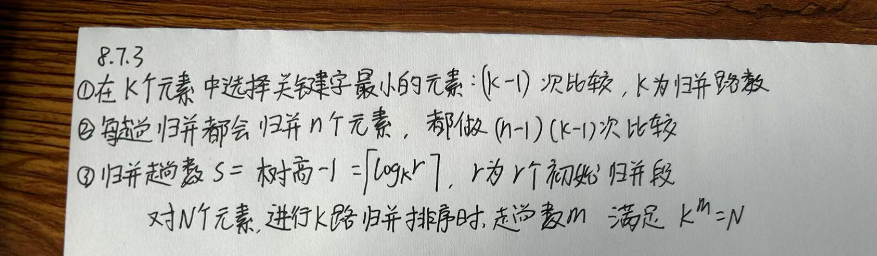 8.7.3
①在K个元素中选择关键字最小的元素:(k-1)次比较,K为归并路数
②每趟归并都会归并n个元素,都做(n-1)(k-1)次比较
③归并趟数S=树高-1=⌈logₖr⌉,r为r个初始归并段
对N个元素,进行K路归并排序时,趟数m 满足 Kᵐ=N